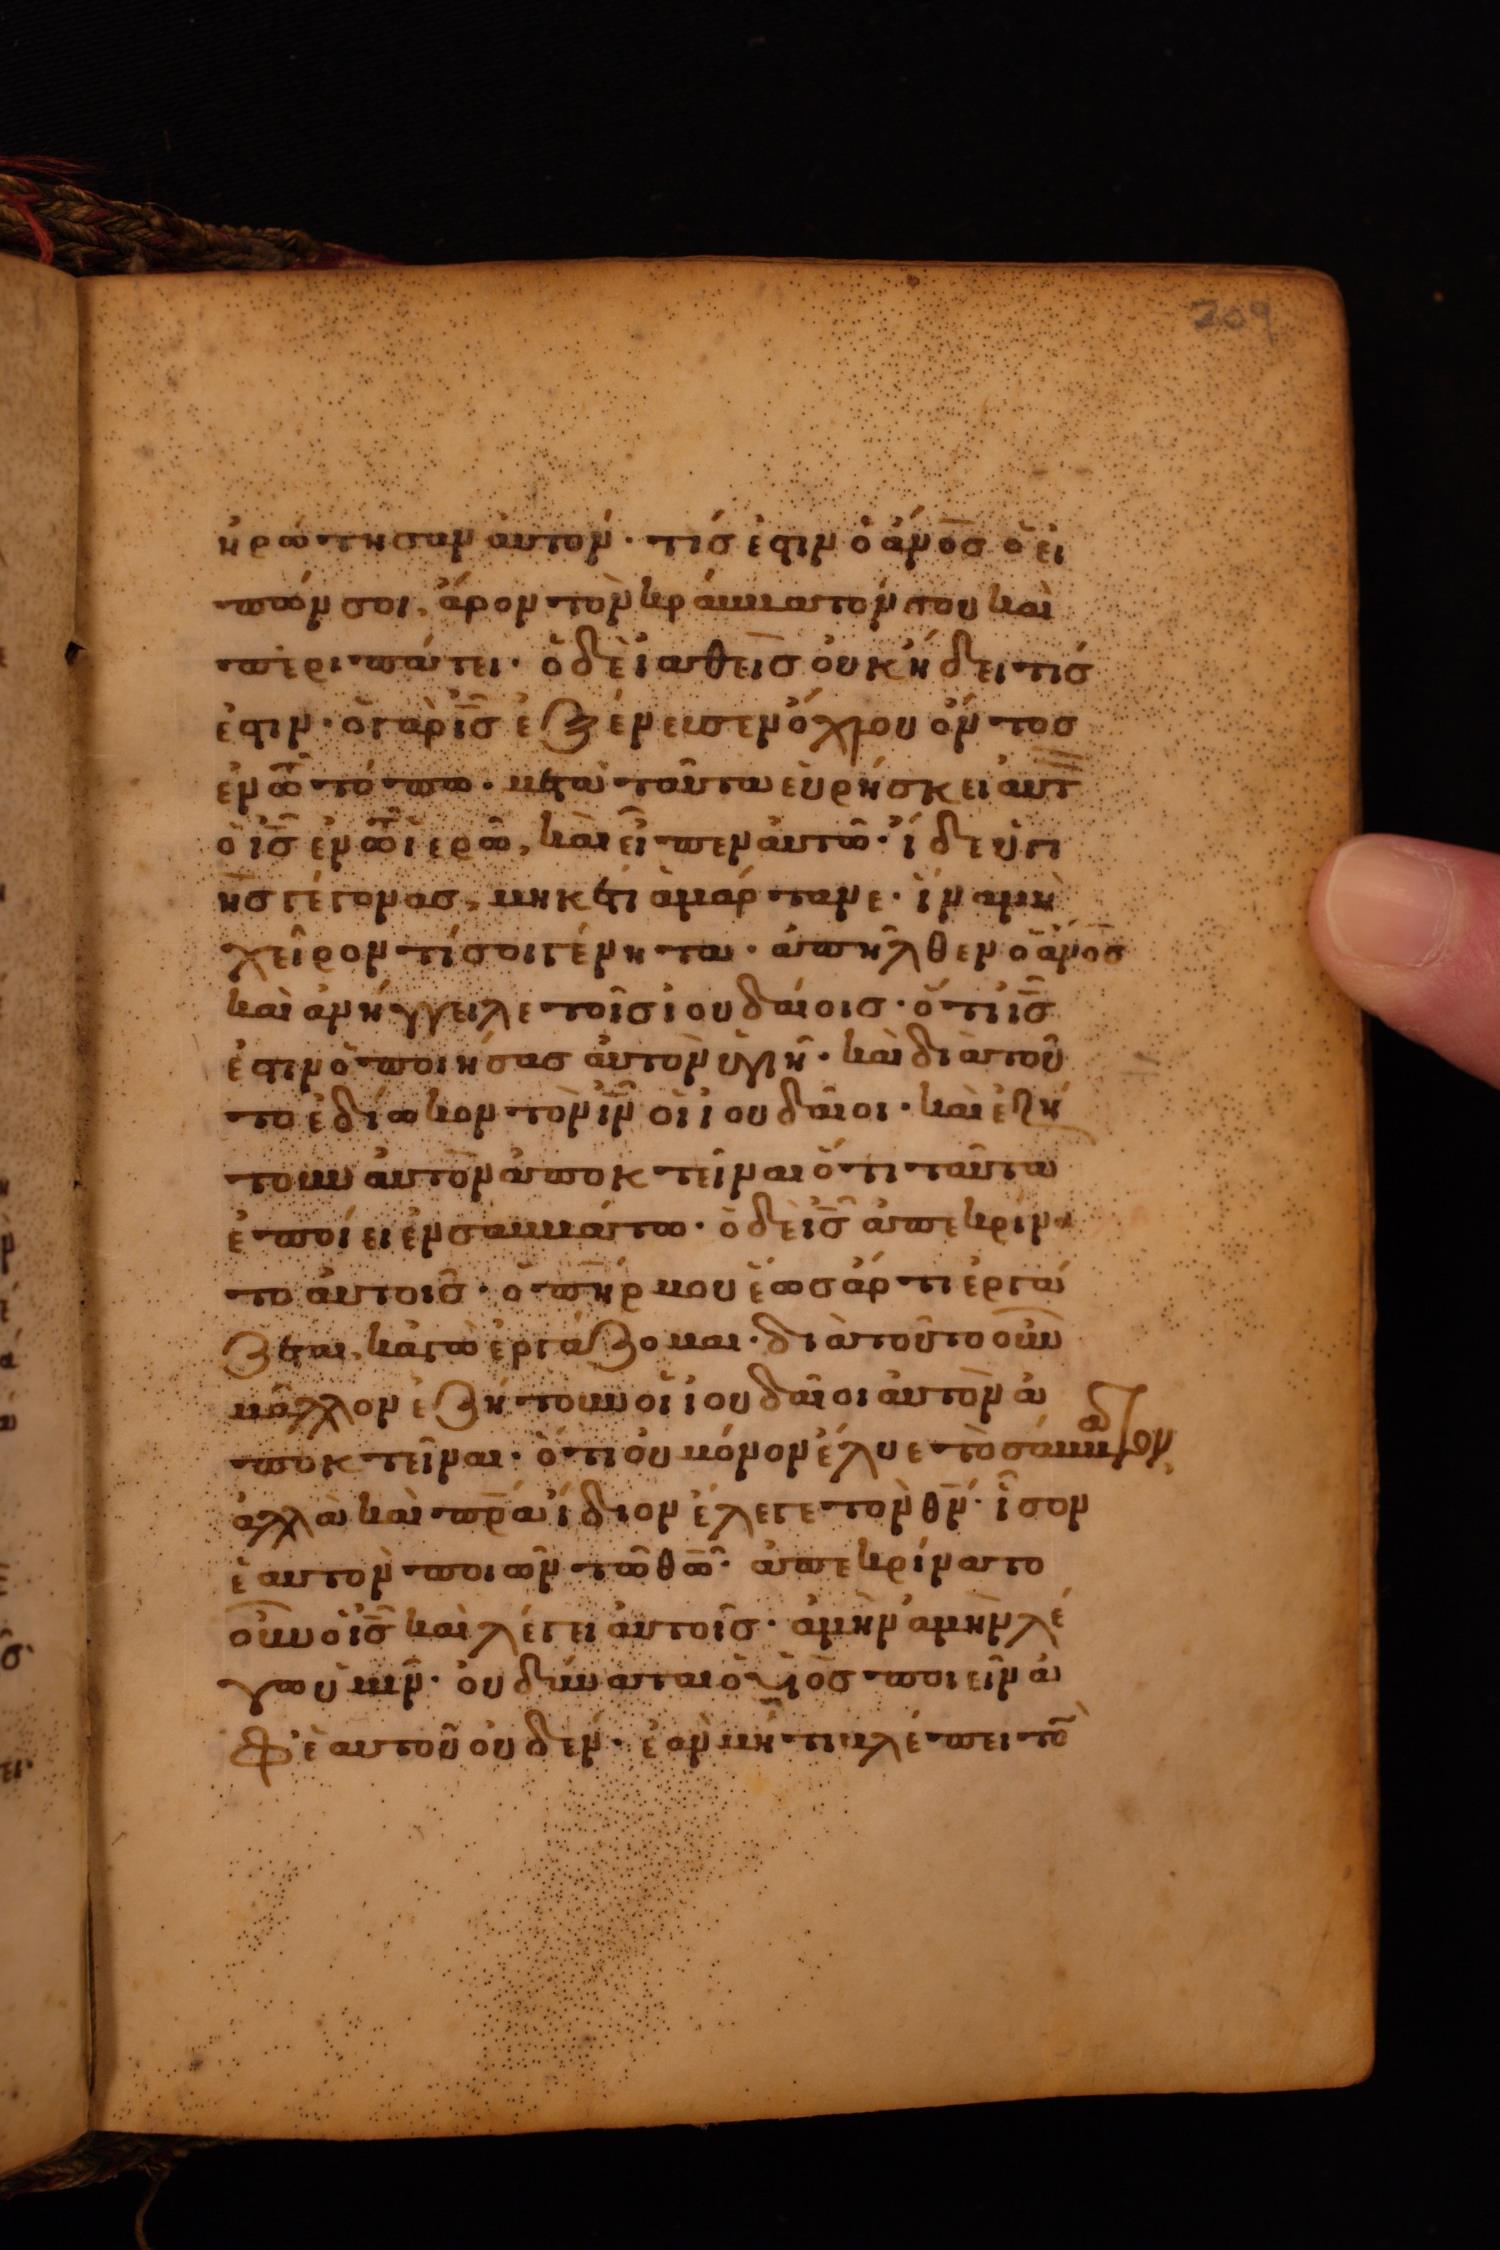 209
ἠρώτησαν αὐτόν· τίς ἐστιν ὁ ἄνος ὁ εἰ
πών σοι, ἄρον τὸν κράββατόν σου καὶ
περιπάτει· ὁ δὲ ἰαθεὶς οὐκ ἤδει τίς
ἐστιν· ὁ γὰρ ἰς ἐξένευσεν ὄχλου ὄντος
ἐν τῶ τόπω· μεταὶ ταῦτα εὑρήσκει αὐτ
ὁ ἰς ἐν τῶ ἱερῶ, καὶ εἶπεν αὐτῶ· ἴδε ὑγι
ης γέγονας, μηκέτι ἁμάρτανε· ἵνα μὴ
χεῖρον τί σοι γένηται· ἀπῆλθεν ὁ ἄνος
καὶ ἀνήγγειλε τοῖς ἰουδαίοις· ὅτι ἰς
ἐστιν ὁ ποιήσας αὐτὸν ὑγιῆ· καὶ διὰ τοῦ
το ἐδίωκον τὸν ἰν οἱ ἰουδαῖοι· καὶ ἐζή
τουν αὐτὸν ἀποκτεῖναι ὅτι ταῦτα
ἐποίει ἐν σαββάτω· ὁ δὲ ἰς ἀπεκρίνα
το αὐτοῖς· ὁ πηρ μου ἕως ἄρτι ἐργά
ζεται, κἀγὼ ἐργάζομαι· διὰ τοῦτο οὖν
μᾶλλον ἐζήτουν οἱ ἰουδαῖοι αὐτὸν ἀ
ποκτεῖναι· ὅτι οὐ μόνον ἔλυε τὸ σάββατον,
ἀλλὰ καὶ πρα ἴδιον ἔλεγε τὸν θν· ἶσον
ἑαυτὸν ποιῶν τῶ θῶ· ἀπεκρίνατο
οὖν ὁ ἰς καὶ λέγει αὐτοῖς· ἀμὴν ἀμὴν λέ
γω ὑμῖν· οὐ δύναται ὁ υἱὸς ποιεῖν ἀ
φ' ἑαυτοῦ οὐδέν· ἐὰν μή τι βλέπει τὸ